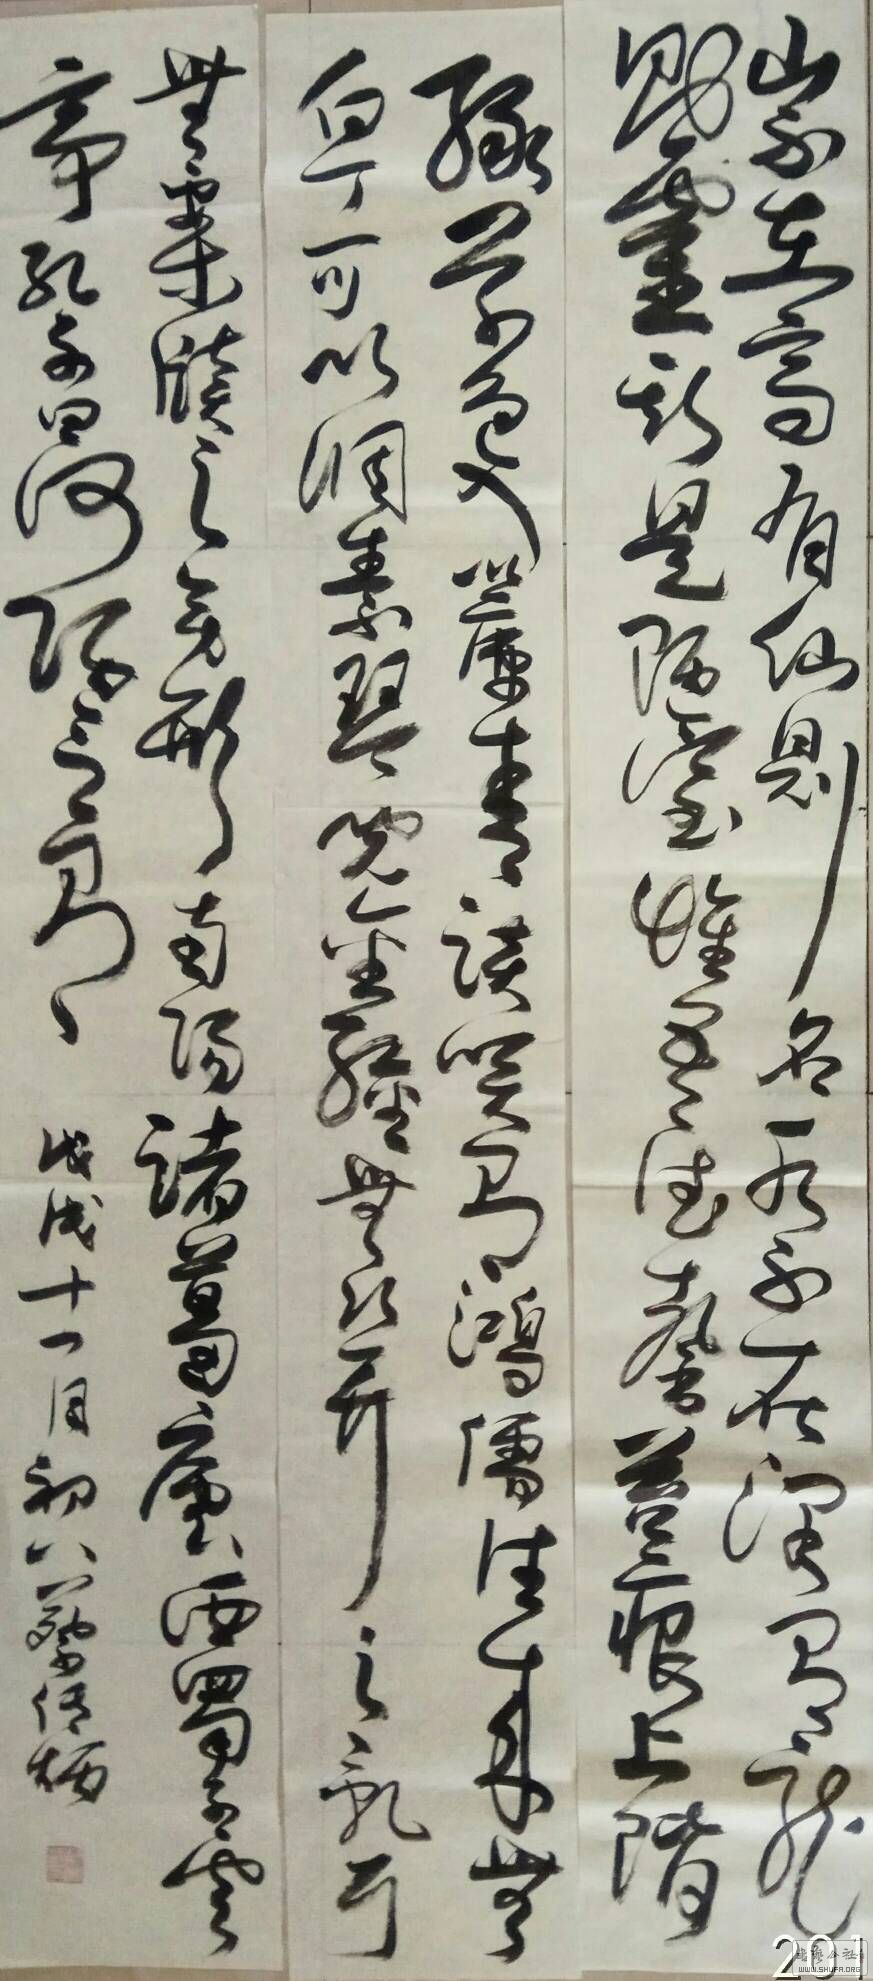 山不在高有仙則名水不在深有龍
則靈斯是陋室惟吾德馨苔痕上階
綠草色入簾青談笑有鴻儒往來無
白丁可以調素琴閱金經無絲竹之亂耳
無案牘之勞形南陽諸葛廬西蜀子雲
亭孔子曰何陋之有
戊戌十一月初八
201
WWW.SHUFA.ORG